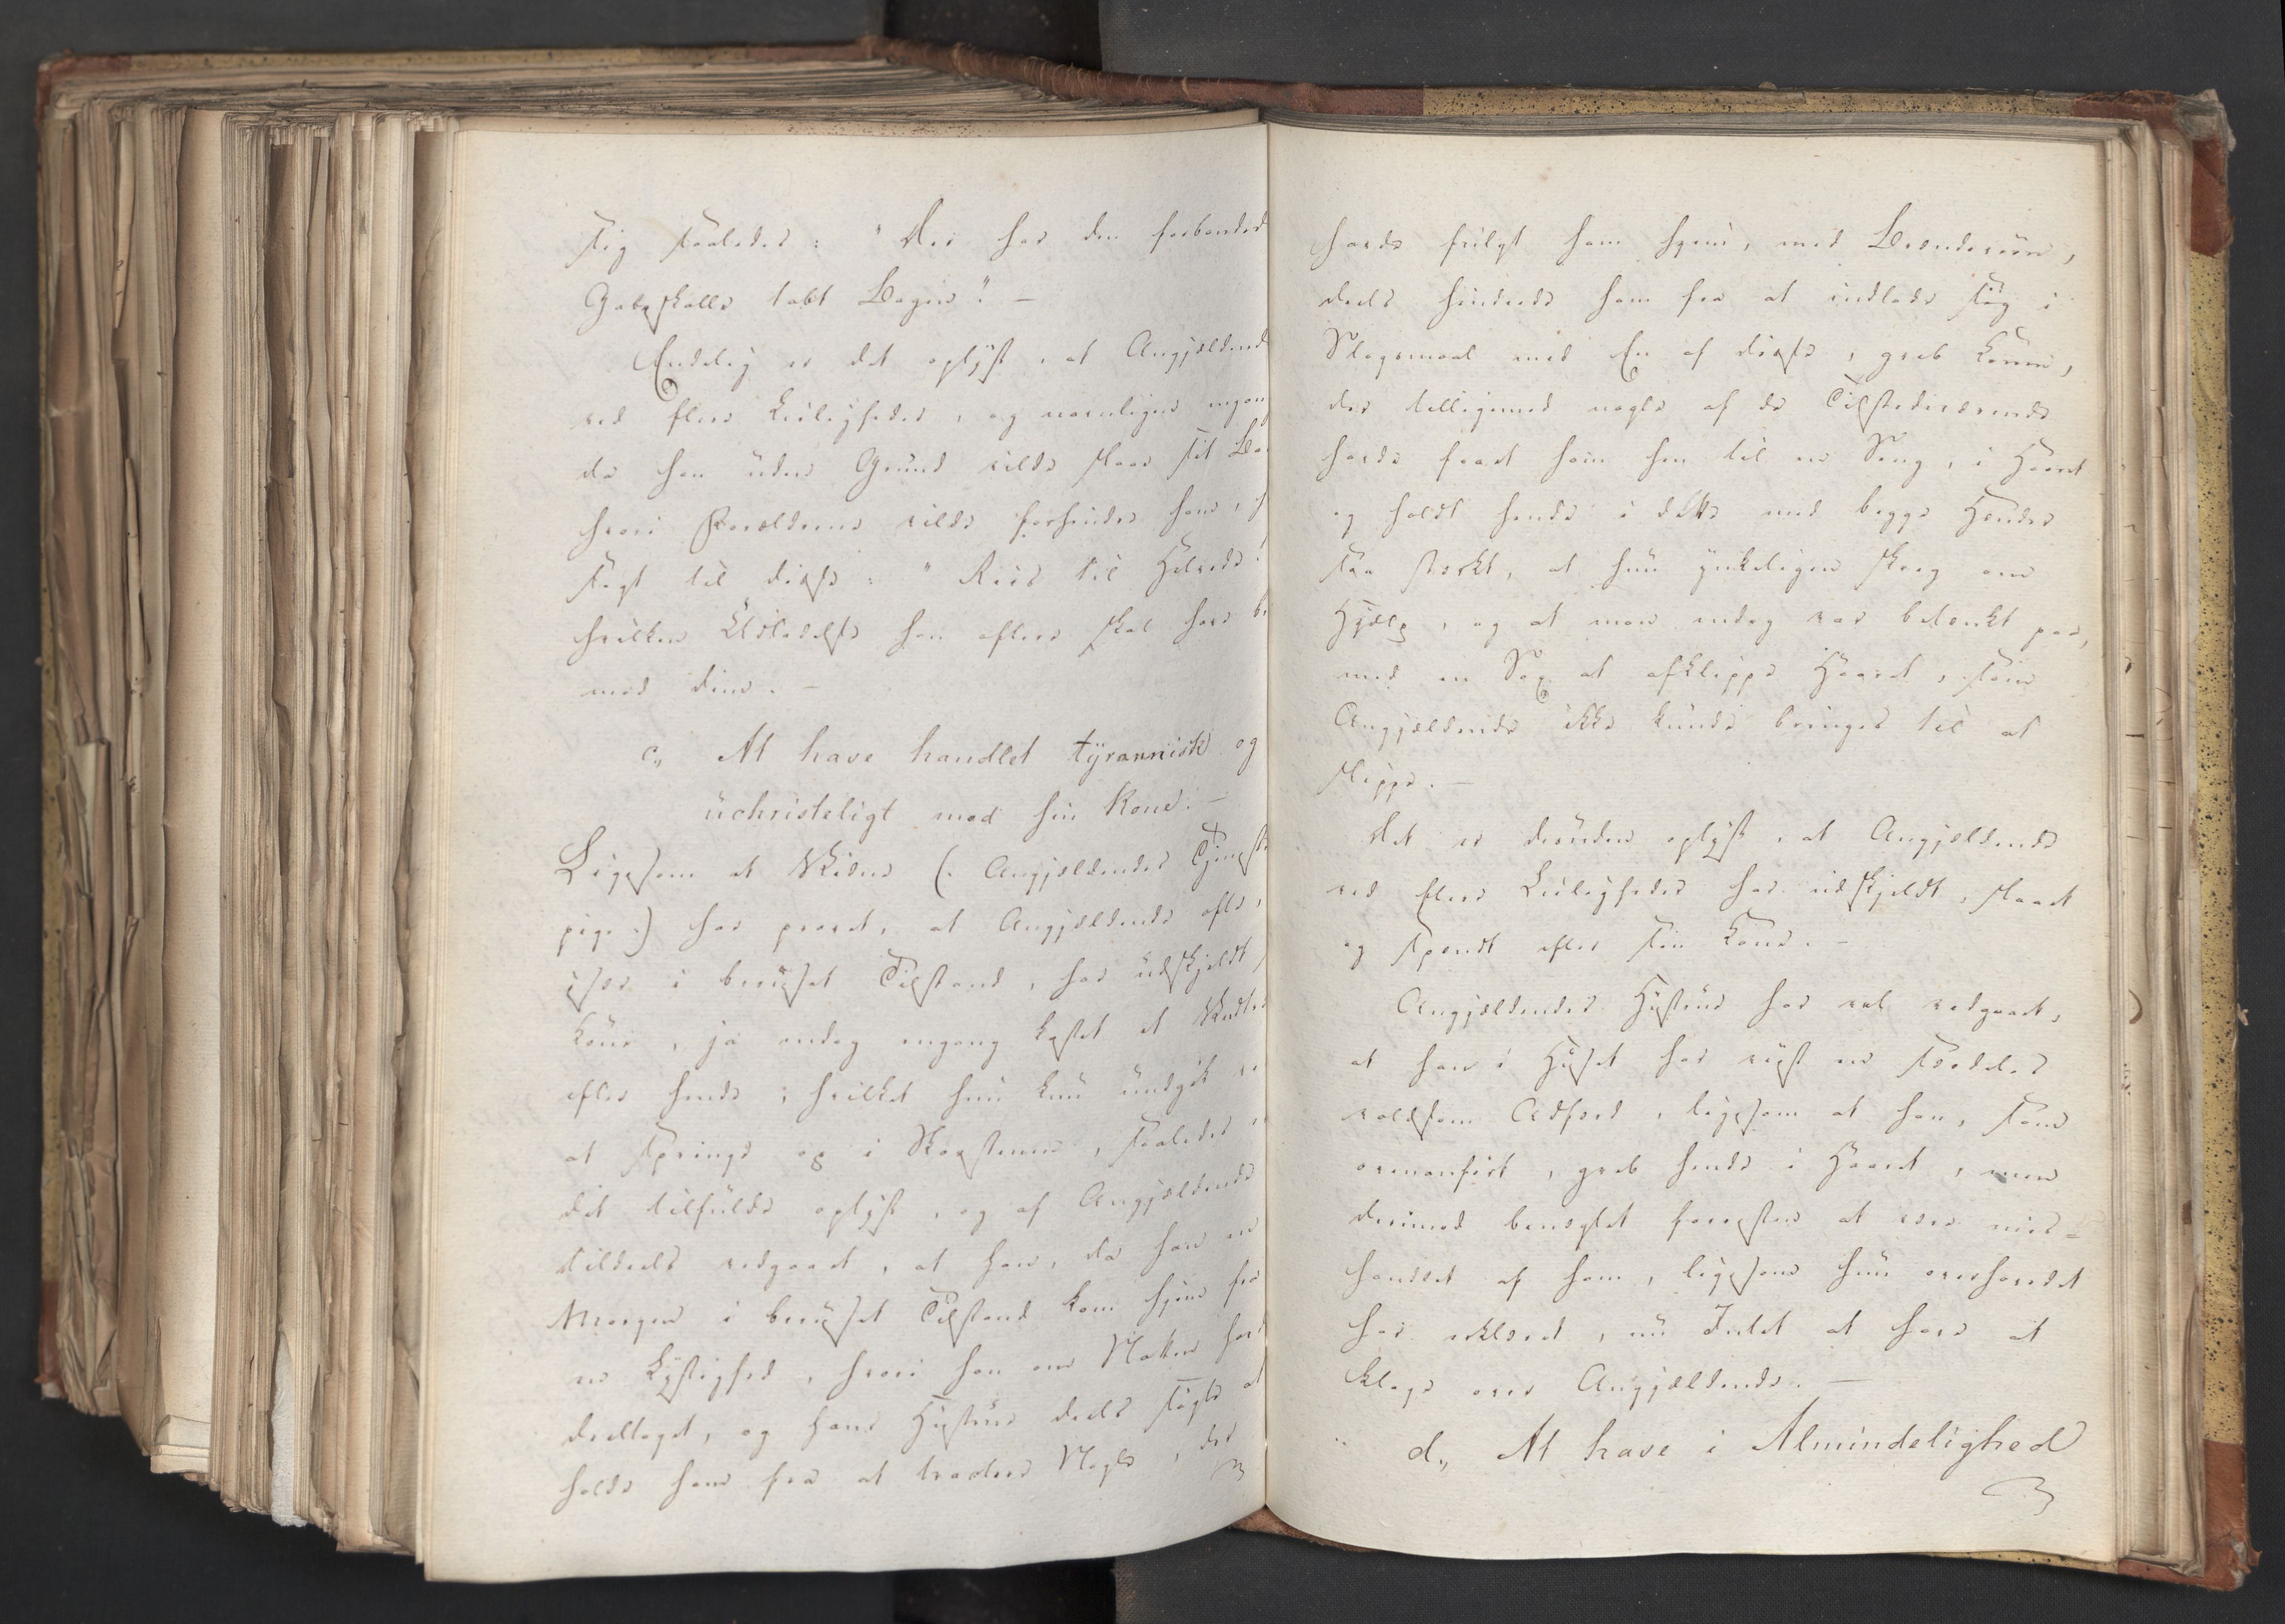 sig saaledes: "Der har den forbandede
Gabeskalle tabt Bogen". —
Endelig er det oplyst, at Angjældende
ved flere Leiligheder, og navnligen engang
da han uden Grund vilde slaae sit Ba
hvori Forældrene vilde forhindre ham,
sagt til disse: "Reis til Helvede"
hvilken Udladelse han oftere skal have br
mod dem. —
c., At have handlet tyrannisk og
uchristeligt mod sin Kone. —
Ligesom et Vidne (: Angjældendes Tjeneste
pige :) har provet, at Angjældende ofte,
især i beruset Tilstand, har udskjeldt
Kone, ja endog engang kastet et
efter hende, hvilket hun kun undgik ve
at springe op i Skorstenen, saaledes er
det tilfulde oplyst, og af Angjældende
tildeels vedgaaet, at han, da han en
Morgen i beruset Tilstand kom hjem fra
en Lystighed, hvori han om Natten havde
deeltaget, og hans Hustrue deels søgte at
holde ham fra at Nogle, der
havde fulgt ham hjem, med Brændeviin,
deels hindrede ham fra at indlade sig i
Slagsmaal med En af disse, greb Konen,
der tilligemed nogle af de Tilstedeværende
havde faaet ham hen til en Seng, i Haaret
og holdt hende i dette med begge Hænder
saa stærkt, at hun ynkeligen skreg om
Hjælp, og at man endog var betænkt paa,
med en Sax at afklippe Haaret, som
Angjældende ikke kunde bringes til at
slippe. —
Det er desuden oplyst, at Angjældende
ved flere Leiligheder har udskjeldt, slaaet
og spændt efter sin Kone. —
Angjældendes Hustrue har vel vedgaaet,
at han i Huset har viist en særdeles
voldsom Adfærd, ligesom at han, som
ovenanført, greb hende i Haaret, men
derimod benægtet forresten at være mis-
handlet af ham, ligesom hun overhovedet
har erklæret, nu Intet at have at
klage over Angjældende. —
d., At have i Almindelighed